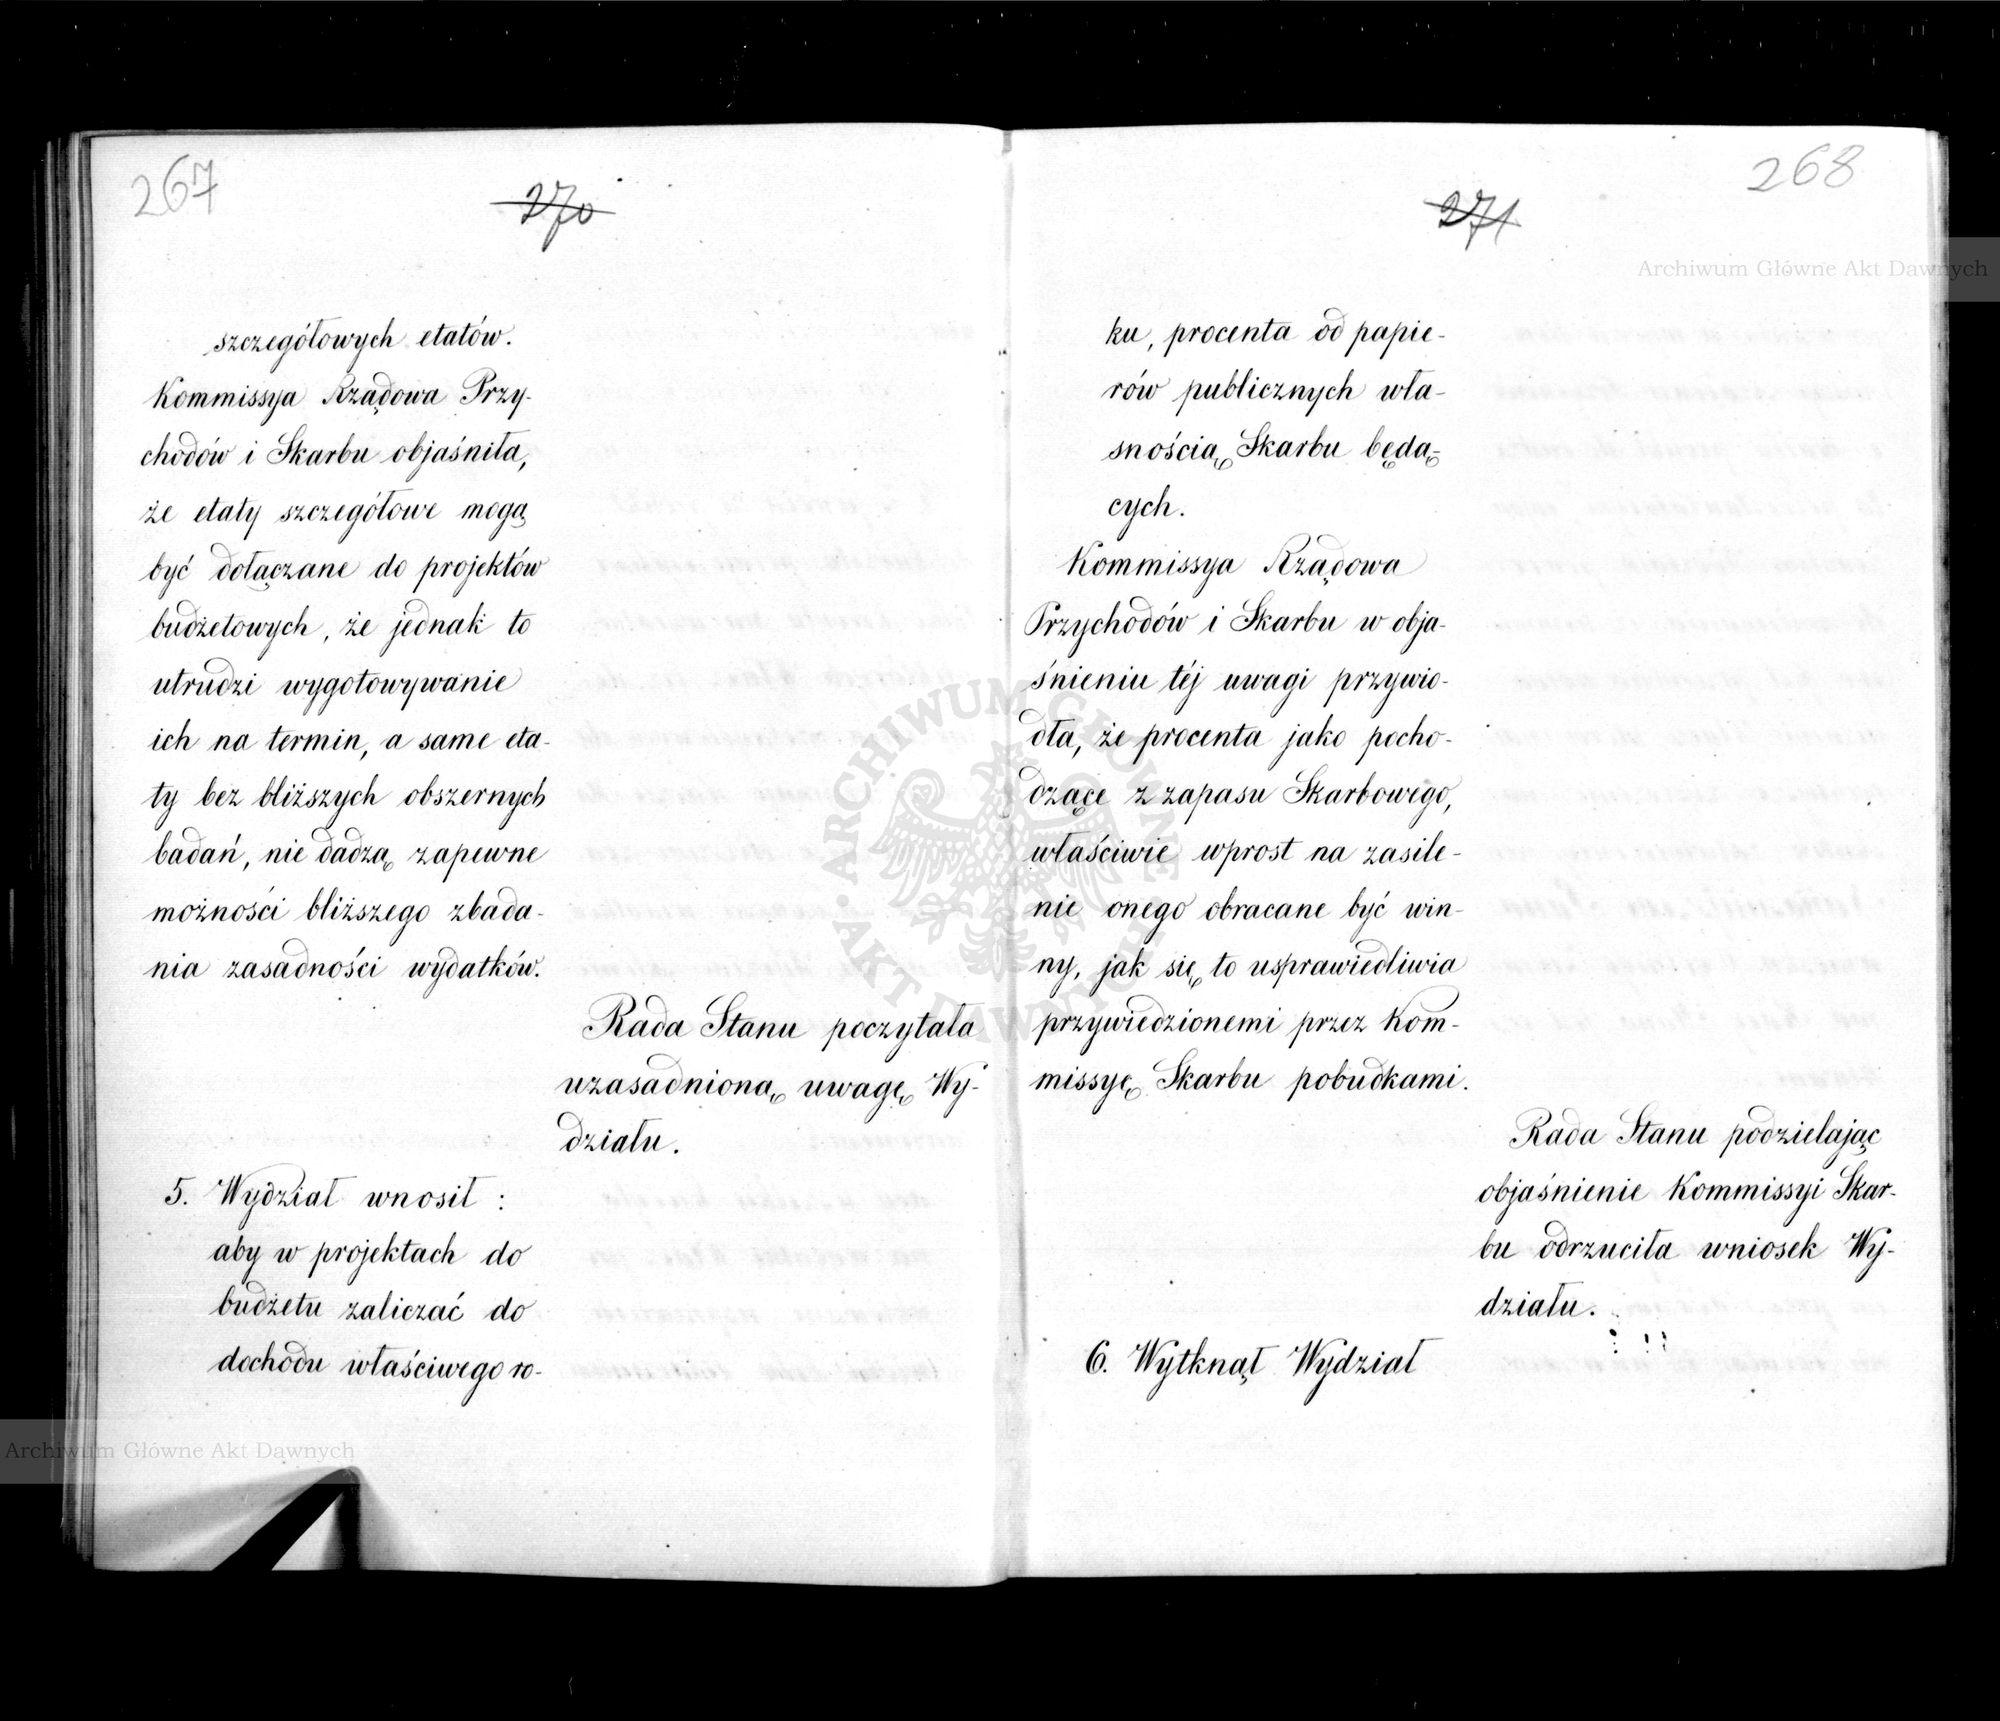 267
270
szczegółowych etatów.
Kommissya Rządowa Przy-
chodów i Skarbu objaśniła,
że etaty szczegółowe mogą
być dołączane do projektów
budżetowych, że jednak to
utrudzi wygotowywanie
ich na termin, a same eta-
ty bez bliższych obszernych
badań, nie dadzą zapewne
możności bliższego zbada-
nia zasadności wydatków.
Rada Stanu poczytała
uzasadnioną uwagę Wy-
działu.
5. Wydział wnosił :
aby w projektach do
budżetu zaliczać do
dochodu właściwego ro-
268
271
ku, procenta od papie-
rów publicznych wła-
snością Skarbu będą-
cych.
Kommissya Rządowa
Przychodów i Skarbu w obja-
śnieniu téj uwagi przywio-
dła, że procenta jako pocho-
dzące z zapasu Skarbowego,
właściwie wprost na zasile-
nie onego obracane być win-
ny, jak się to usprawiedliwia
przywiedzionemi przez Kom-
missyę Skarbu pobudkami.
Rada Stanu podzielając
objaśnienie Kommissyi Skar-
bu odrzuciła wniosek Wy-
działu.
6. Wytknął Wydział
Archiwum Główne Akt Dawnych
Archiwum Główne Akt Dawnych
ARCHIWUM GŁÓWNE AKT DAWNYCH